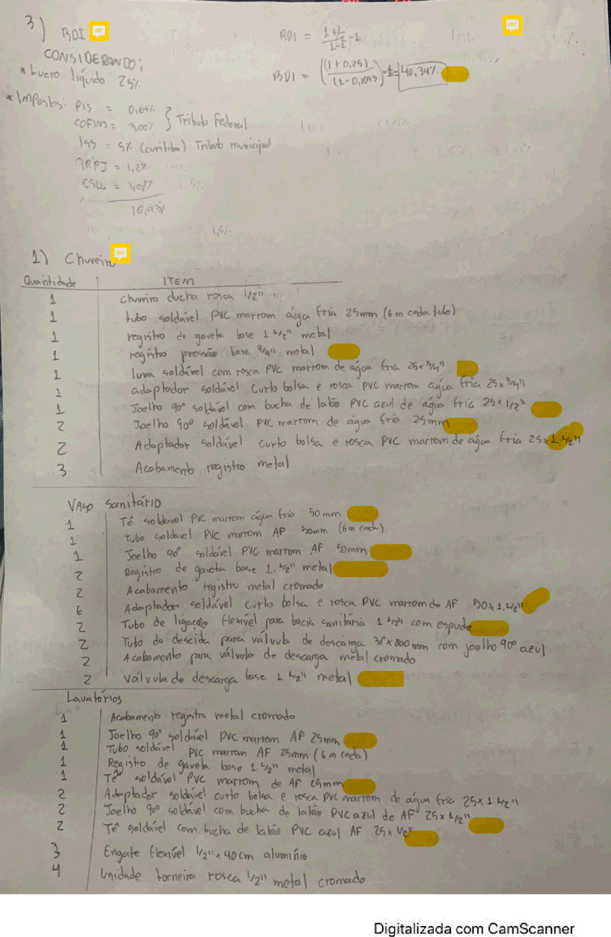 3) BDI
CONSIDERANDO;
* Lucro líquido 25%
* Impostos: PIS = 0,65%
COFINS = 3,00% } Tributo Federal
ISS = 5% (Curitiba) Tributo municipal
IRPJ = 1,2%
CSLL = 1,08%
10,93%
BDI = 1+L/1-I -1
BDI = ((1+0,25)/(1-0,1093)) -1 = 40,34%
1) Chuveiro
Quantidade ITEM
1 chuveiro ducha rosca 1/2"
1 tubo soldável PVC marrom água fria 25mm (6m cada tubo)
1 registro de gaveta base 1 1/2" metal
1 registro pressão base 3/4" metal
1 luva soldável com rosca PVC marrom de água fria 25x3/4"
1 adaptador soldável curto bolsa e rosca PVC marrom água fria 25x3/4"
1 Joelho 90° soldável com bucha de latão PVC azul de água fria 25x1/2"
2 Joelho 90° soldável PVC marrom de água fria 25mm
2 Adaptador soldável curto bolsa e rosca PVC marrom de água fria 25x1 1/2"
3 Acabamento registro metal
Vaso sanitário
1 Tê soldável PVC marrom água fria 50mm
1 Tubo soldável PVC marrom AF 50mm (6m cada)
1 Joelho 90° soldável PVC marrom AF 50mm
2 Registro de gaveta base 1.1/2" metal
2 Acabamento registro metal cromado
6 Adaptador soldável curto bolsa e rosca PVC marrom de AF 50x1.1/2"
2 Tubo de ligação flexível para bacia sanitária 1 1/2" com espude
2 Tubo de descida para válvula de descarga 38x800mm com joelho 90° azul
2 Acabamento para válvula de descarga metal cromado
2 Válvula de descarga base 1 1/2" metal
Lavatórios
1 Acabamento registro metal cromado
1 Joelho 90° soldável PVC marrom AF 25mm
1 Tubo soldável PVC marrom AF 25mm (6m cada)
1 Registro de gaveta base 1 1/2" metal
1 Tê soldável PVC marrom de AF 25mm
2 Adaptador soldável curto bolsa e rosca PVC marrom de água fria 25x1 1/2"
2 Joelho 90° soldável com bucha de latão PVC azul de AF 25x1/2"
2 Tê soldável com bucha de latão PVC azul AF 25x1/2"
3 Engate flexível 1/2"x40cm alumínio
4 Unidade torneira rosca 1/2" metal cromado
Digitalizada com CamScanner